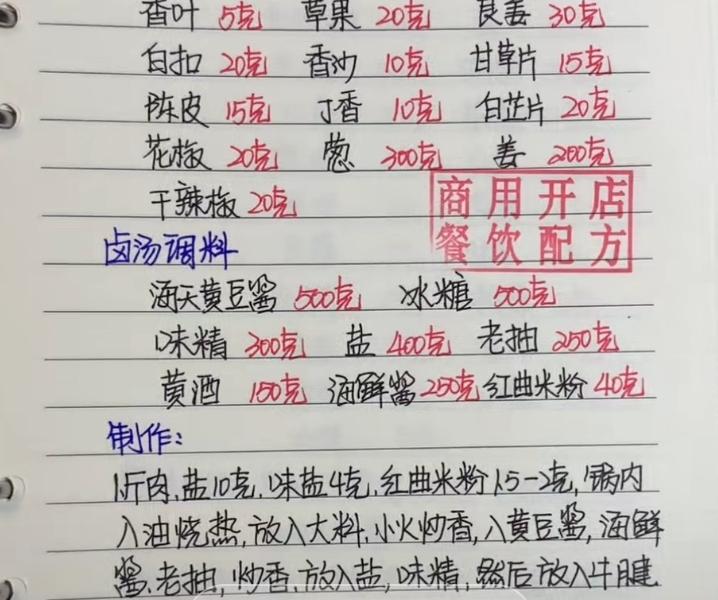 香叶 5克 草果 20克 良姜 30克
白扣 20克 香沙 10克 甘草片 15克
陈皮 15克 丁香 10克 白芷片 20克
花椒 20克 葱 300克 姜 200克
干辣椒 20克
商用开店
餐饮配方
卤汤调料
海天黄豆酱 500克 冰糖 500克
味精 300克 盐 400克 老抽 250克
黄酒 150克 海鲜酱 250克 红曲米粉 40克
制作:
1斤肉,盐10克,味盐4克,红曲米粉1.5-2克,锅内
入油烧热,放入大料,小火炒香,入黄豆酱,海鲜
酱,老抽,炒香,放入盐,味精,然后放入牛腱